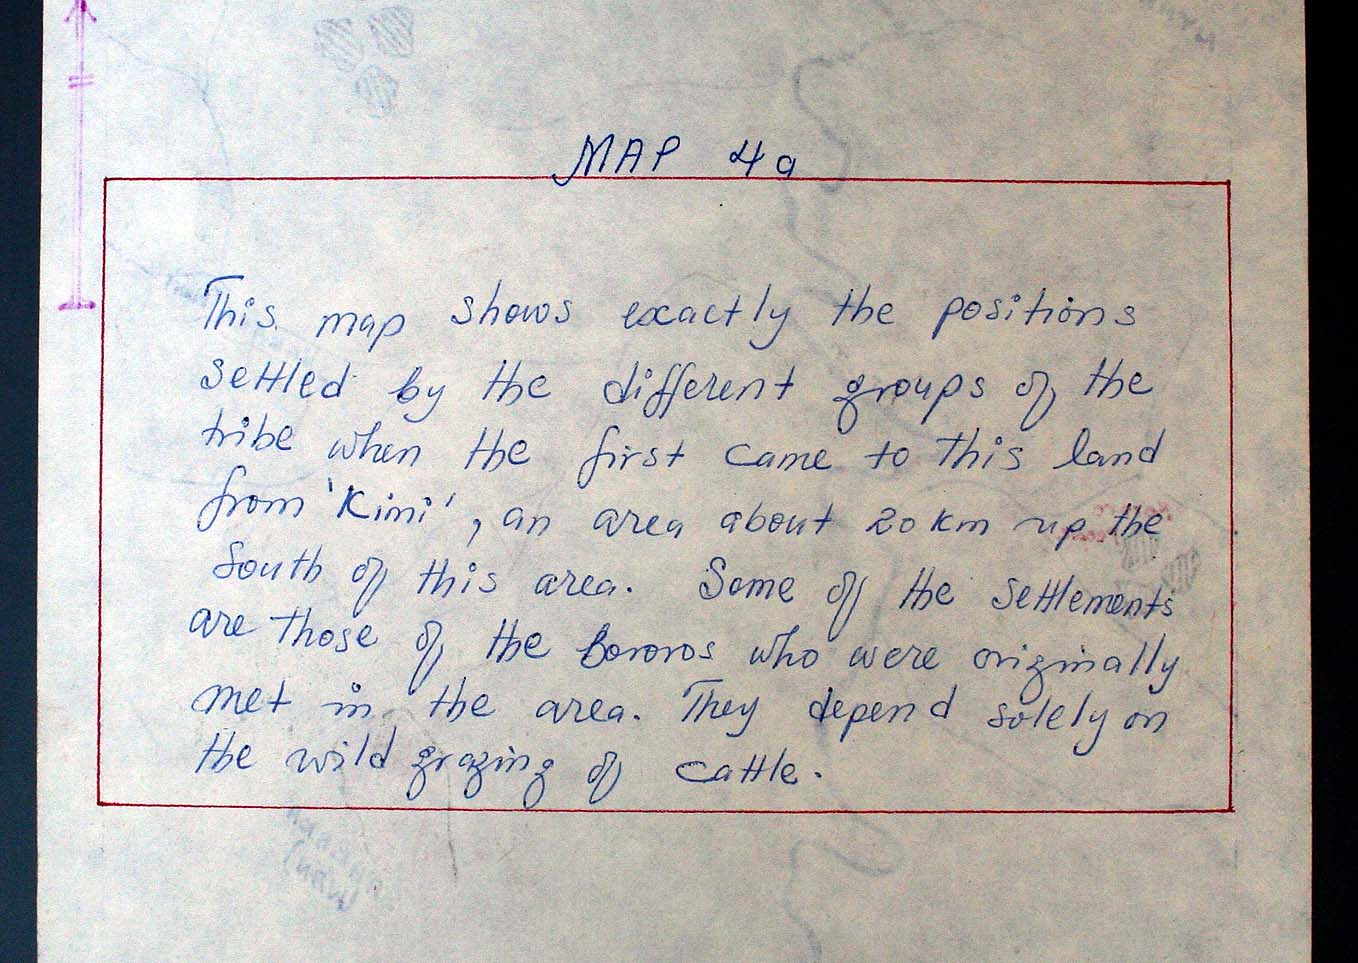 MAP 4a
This map shows exactly the positions
settled by the different groups of the
tribe when the first came to this land
from 'Kimi', an area about 20 km up the
South of this area. Some of the settlements
are those of the Bororos who were originally
met in the area. They depend solely on
the wild grazing of cattle.